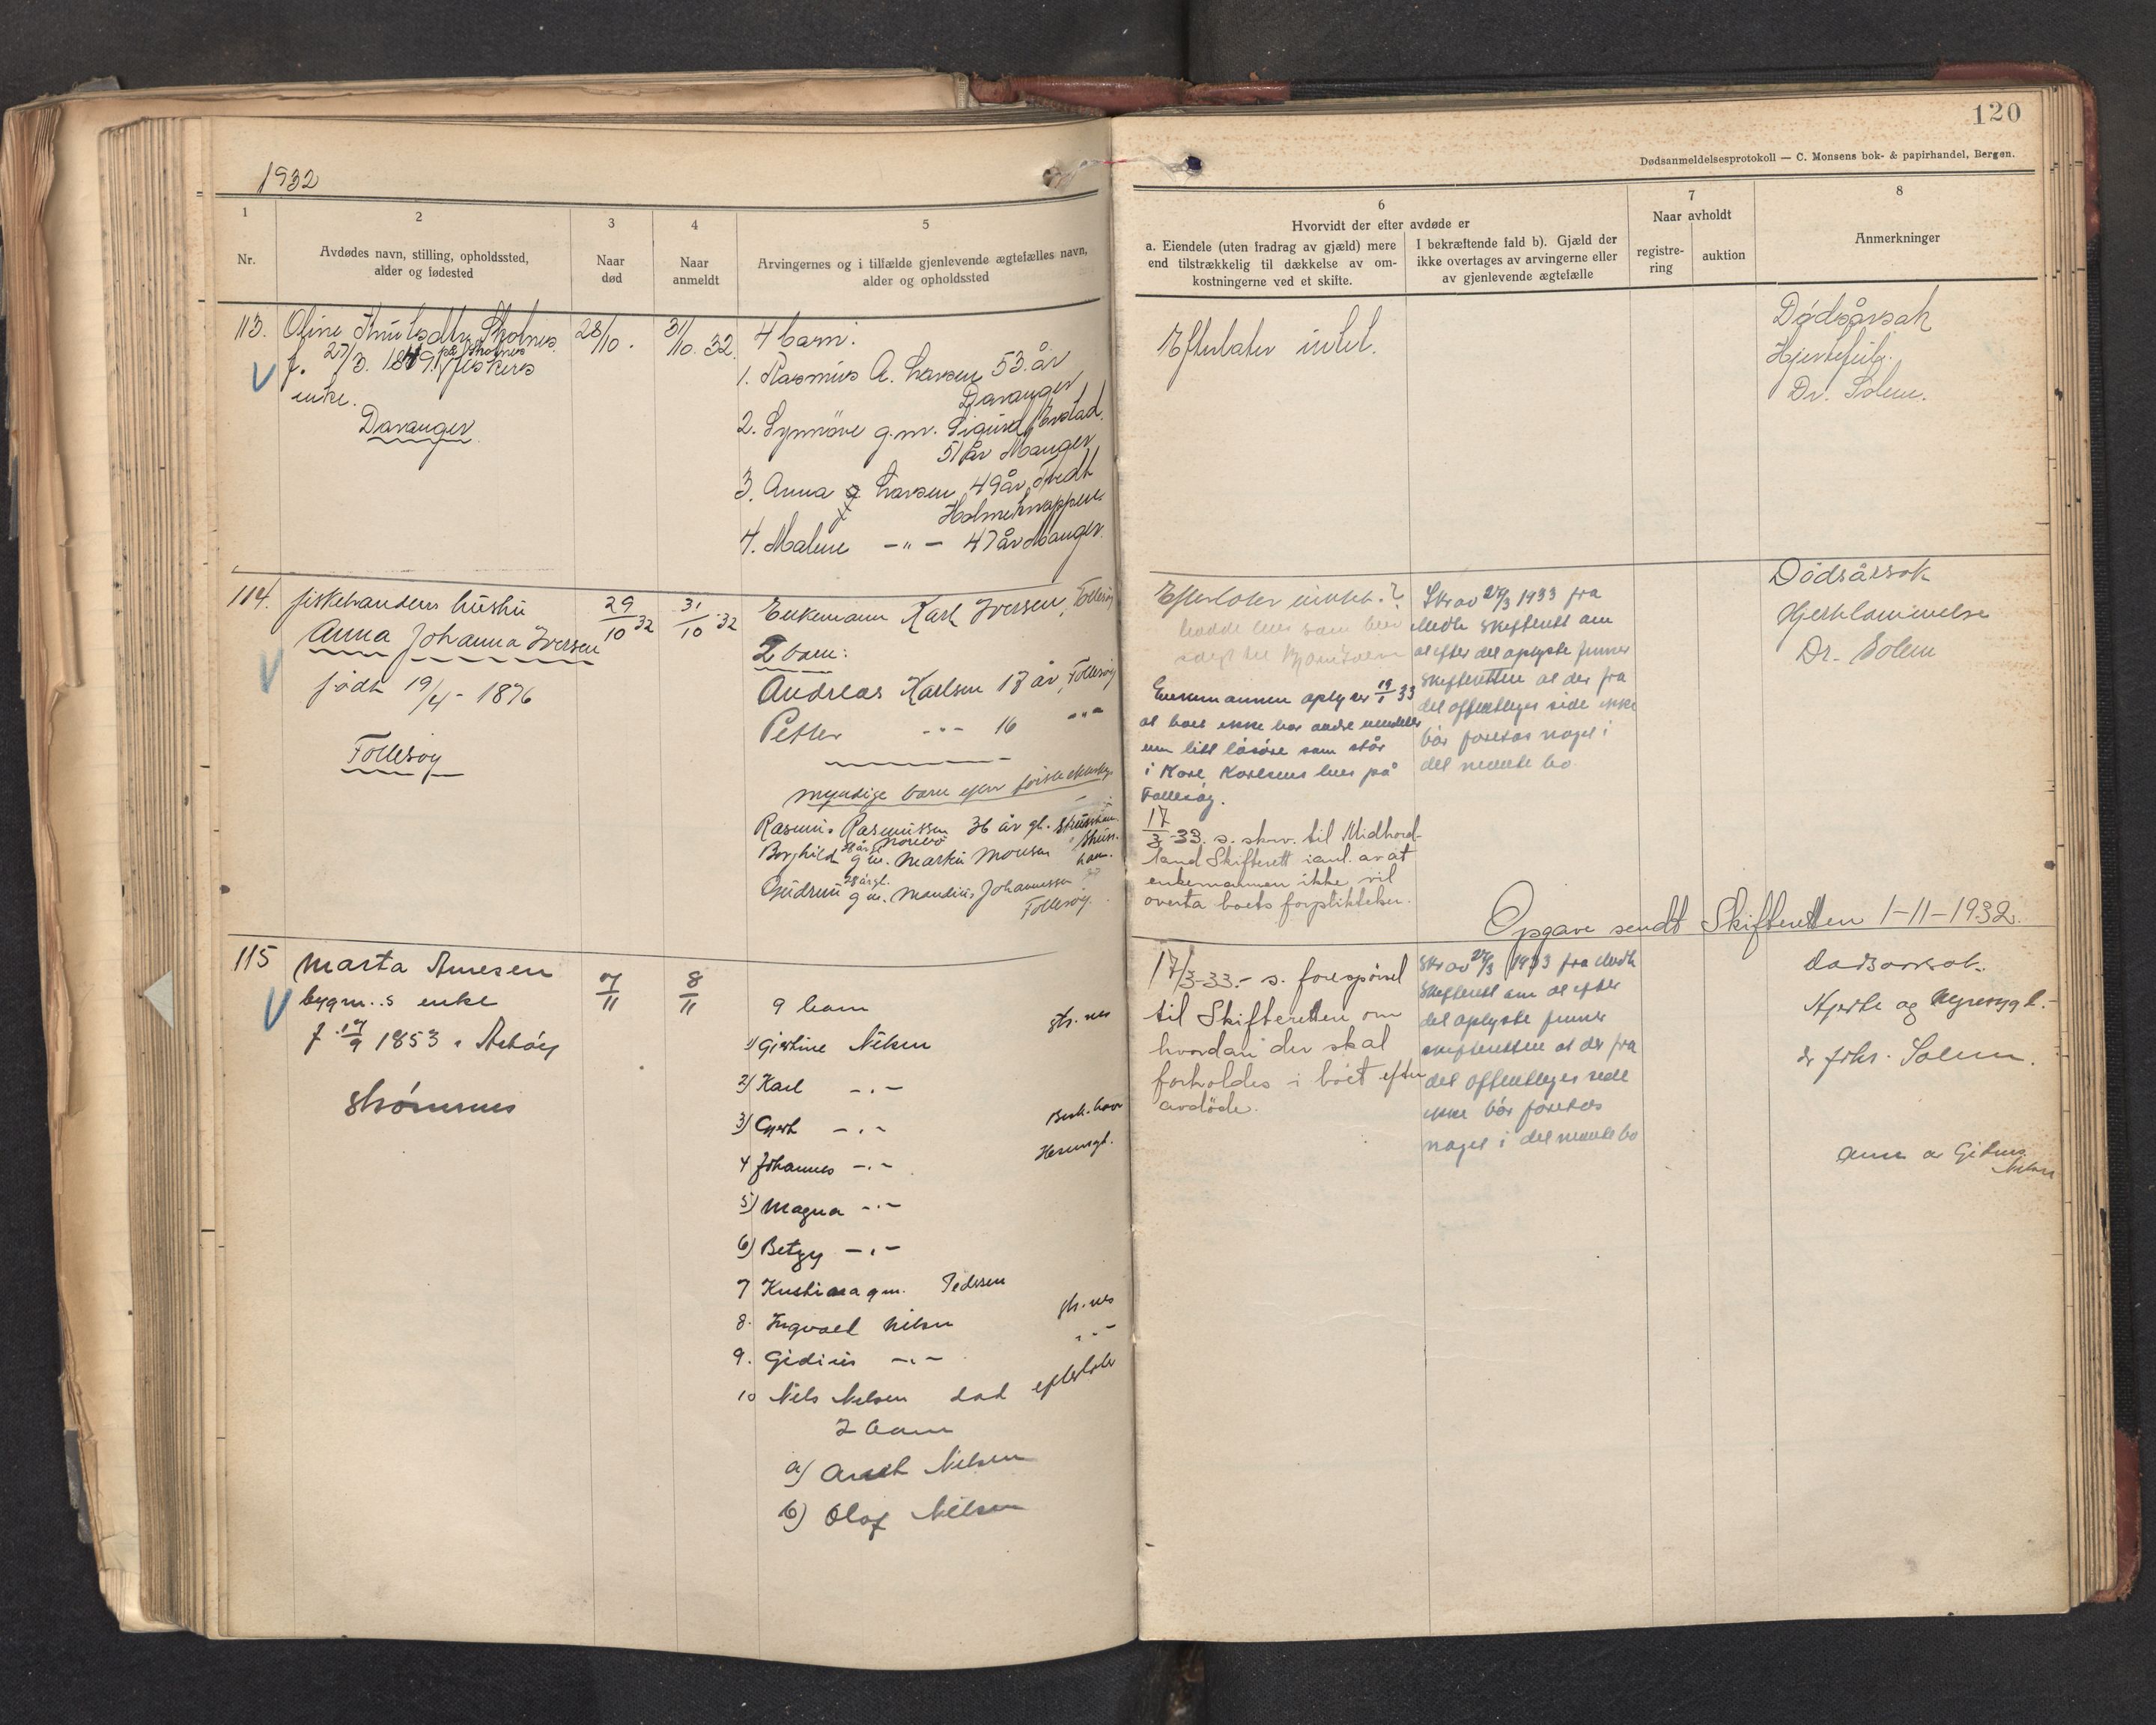 120
Dødsanmeldelsesprotokoll — C. Monsens bok- & papirhandel, Bergen.
1932
1
2
3
4
5
Nr.
Avdødes navn, stilling, opholdssted,
alder og fødested
Naar
død
Naar
anmeldt
Arvingernes og i tilfælde gjenlevende ægtefælles navn,
alder og opholdssted
6
Hvorvidt der efter avdøde er
a. Eiendele (uten fradrag av gjæld) mere
end tilstrækkelig til dækkelse av om-
kostningerne ved et skifte.
I bekræftende fald b). Gjæld der
ikke overtages av arvingerne eller
av gjenlevende ægtefælle
7
Naar avholdt
registre-
ring
auktion
8
Anmerkninger
113.
Oline Knutsdtr.
f. 27/3. 1849 fiskers
enke.
Davanger
28/10.
31/10. 32.
4 barn:
1. Rasmus A. Larsen 53 år
Davanger
2. Synnöve g.m. Sigurd
51 år Manger
3. Anna Larsen 49 år
Holmeknappen.
4. Malene —"— 47 år Manger.
Efterlater intet.
Dødsårsak
Dr. Solem.
114.
fiskehandlers hustru
Anna Johanna Iversen
født 19/4 - 1876
Follesøy
29/10 32
31/10 32
Enkemann Karl Iversen, Follesøy
2 barn:
Andreas Karlsen 17 år, Follesøy
Petter -"- 16 -"-
myndige barn efter første ekteskap
Rasmus Rasmussen 36 år gl.
Borghild g.m. Martin Monsen
Gudrun 28 år gl. g.m. Johannessen
Follesøy.
Efterlater
Enkemannen oplyser 19/1 33
at boet ikke har andre eiendeler
enn litt løsøre som står
i Karl Karlsens hus på
Follesøy.
17/3-33. s. skrv. til Midhord-
land Skifterett i anl. av at
enkemannen ikke vil
overta boets forpliktelser.
Skr av 27/3 1933 fra
Midh skifterett om
at efter det oplyste finner
skifteretten at der fra
det offentliges side ikke
bör foretas noget i
det nevnte bo
Dödsårsak
Hjertelammelse
Dr. Solem
Opgave sendt Skifteretten 1-11-1932.
115
Marta Arnesen
enke
f. 17/9 1853
Strømsnes
7/11
8/11
9 barn
1) Gjertine Nilsen
str. nes
2) Karl -"-
3) Gjert -"-
4 Johannes -"-
5) Magna -"-
6) Betzy -"-
7 Kristiana gm. Pedersen
8. Ingvald Nilsen
str. nes
9. Gidius -"-
-"-
10 Nils Nilsen død efterlater
2 barn
a) Nilsen
b) Olaf Nilsen
17/3-33.- s. forespörsel
til Skifteretten om
hvordan der skal
forholdes i boet efter
avdöde.
Skr av 27/3 1933 fra Midh
skifterett om at efter
det oplyste finner
skifteretten at der fra
det offentliges side
ikke bör foretas
noget i det nevnte bo
dødsårsak
Hjerte og nyresygd.
dr Johs. Solem.
anm av Gidius
Nilsen